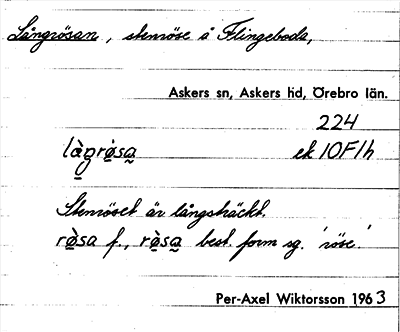 Långrösan, stenröse å Flingeboda,
Askers sn, Askers hd, Örebro län.
224
ek 10F1h
Stenröset är långsträckt.
best. form sg. 'röse'.
Per-Axel Wiktorsson 1963